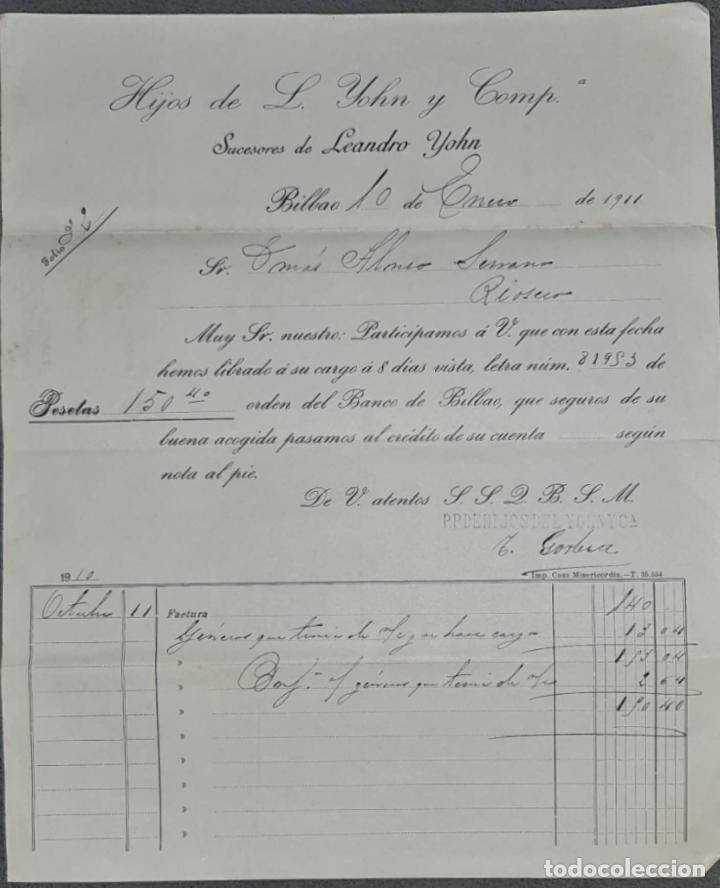 Hijos de L. Yohn y Comp.ª
Sucesores de Leandro Yohn
Bilbao 10 de Enero de 1911
Folio
Sr. Tomás Alonso Serrano
Rioseco
Muy Sr. nuestro: Participamos á V. que con esta fecha
hemos librado á su cargo á 8 dias vista, letra núm. 81953 de
Pesetas 150 40 orden del Banco de Bilbao, que seguros de su
buena acogida pasamos al crédito de su cuenta según
nota al pie.
De V. atentos S. S. Q. B. S. M.
P.P. DE HIJOS DE L. YOHN Y Cª
Imp. Casa Misericordia.—T. 35.554
1910
Octubre 11 Factura 140
Géneros que hace cargo 13 04
" 153 04
" géneros que 2 64
" 150 40
"
"
"
"
"
todocoleccion.net